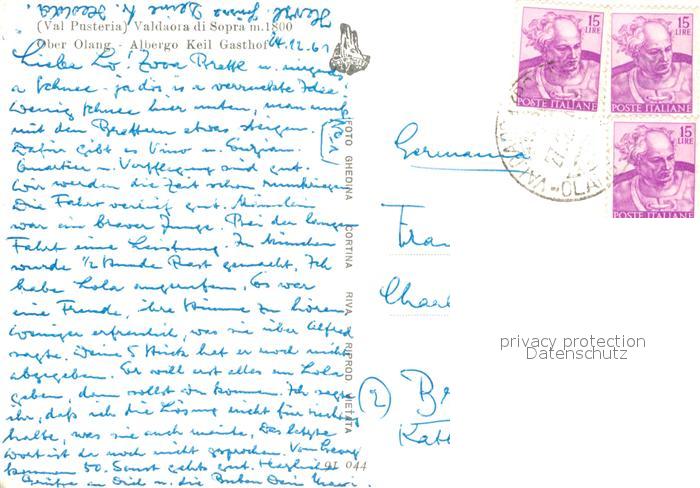 (Val Pusteria) Valdaora di Sopra m.1800
Ober Olang - Albergo Keil Gasthof
24.12.61
Liebe Lo! Zwoa Brettl u. nirgends
a Schnee - ja dös is a verruckte Idee!
Wenig Schnee hier unten, man muß
mit den Brettern etwas steigen.
Dafür gibt es Vino u. Enzian.
Quartier u. Verpflegung sind gut.
Wir werden die Zeit schon rumkriegen.
Die Fahrt verlief gut.
war ein braver Junge. Bei der langen
Fahrt eine Leistung. In München
wurde ½ Stunde Rast gemacht. Ich
habe Lola angerufen. Es war
eine Freude, ihre Stimme zu hören,
weniger erfreulich, was sie über Alfred
sagte. Deine 5 Stück hat er noch nicht
abgegeben. Er will erst alles an Lola
geben, dann sollst du kommen. Ich sagte
ihr, daß ich die Lösung nicht für richtig
halte, was sie auch meinte. Das letzte
Wort ist da noch nicht gesprochen. Von Georg
kommen 50. Sonst gehts gut. Herzliche
Grüße an Dich u. die Buben Dein
FOTO GHEDINA CORTINA RIVA RIPROD VIETATA
91 044
15
LIRE
POSTE ITALIANE
15
LIRE
POSTE ITALIANE
15
LIRE
POSTE ITALIANE
Germania
Fra
Charl
(2) Be
Kat
privacy protection
Datenschutz